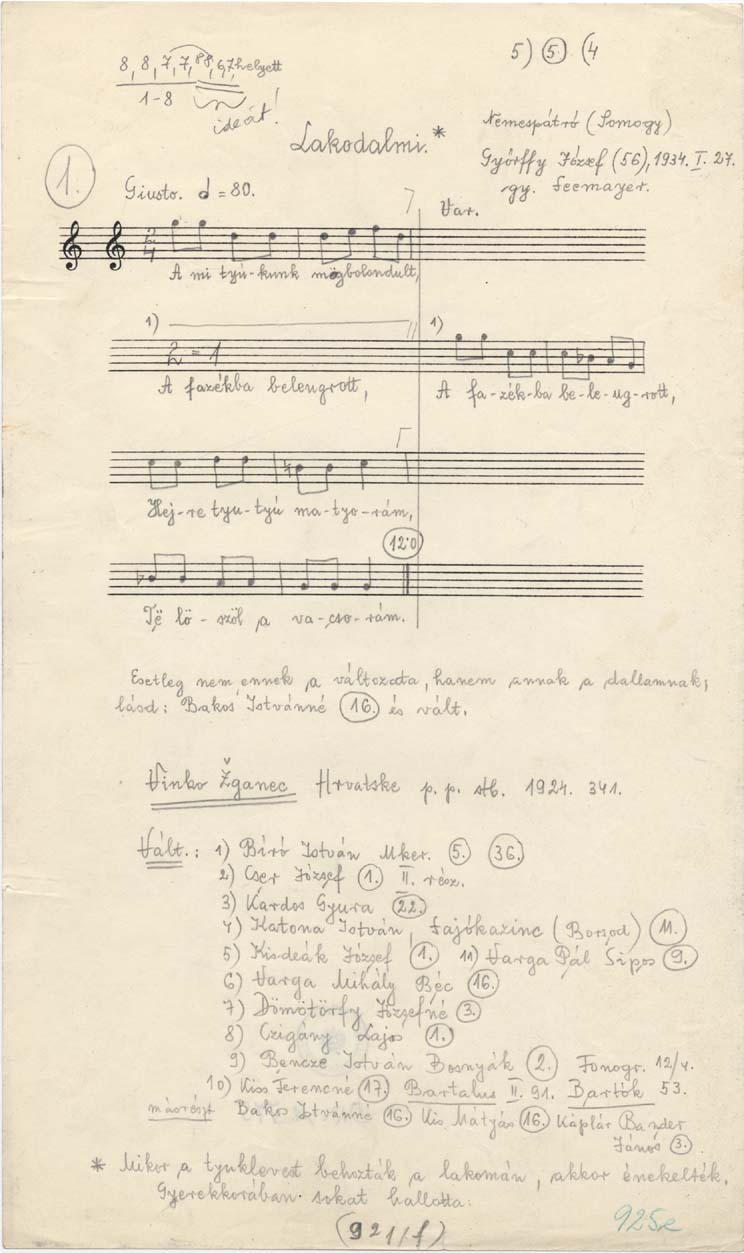 8, 8, 7, 7, 88, 6, 7 helyett
1-8
ideát!
5) 5. (4
Lakodalmi.*
Nemespátró (Somogy)
Győrffy József (56), 1934. I. 27.
gy. Seemayer.
1.
Giusto. = 80.
7
Var.
2/4
A mi tyú-kunk mögbolondult,
1)
1)
2 = 1
A fazékba beleugrott,
A fa-zék-ba be-le-ug-rott,
Hej-re tyu-tyú ma-tyo-rám,
12:0
Të lö-szöl a va-cso-rám.
Esetleg nem ennek a változata, hanem annak a dallamnak;
lásd: Bakos Istvánné 16. és vált.
Vinko Žganec Hrvatske p. p. stb. 1924. 341.
Vált.: 1) Bíró István Mker. 5. 36.
2) Cser József 1. II. rész.
3) Kardos Gyura 22.
4) Katona István, Sajókazinc (Borsod) 11.
5) Kisdeák József 1. 11) Varga Pál Sipos 9.
6) Varga Mihály Béc 16.
7) Dömötörfy Józsefné 3.
8) Czigány Lajos 1.
9) Bencze István Bosnyák 2. Fonogr. 12/4.
10) Kiss Ferencné 17. Bartalus II. 91. Bartók 53.
másrészt Bakos Istvánné 16. Kis Mátyás 16. Káplár Bander
János 3.
* Mikor a tyuklevest behozták a lakomán, akkor énekelték.
Gyerekkorában sokat hallotta.
(921/f)
925e